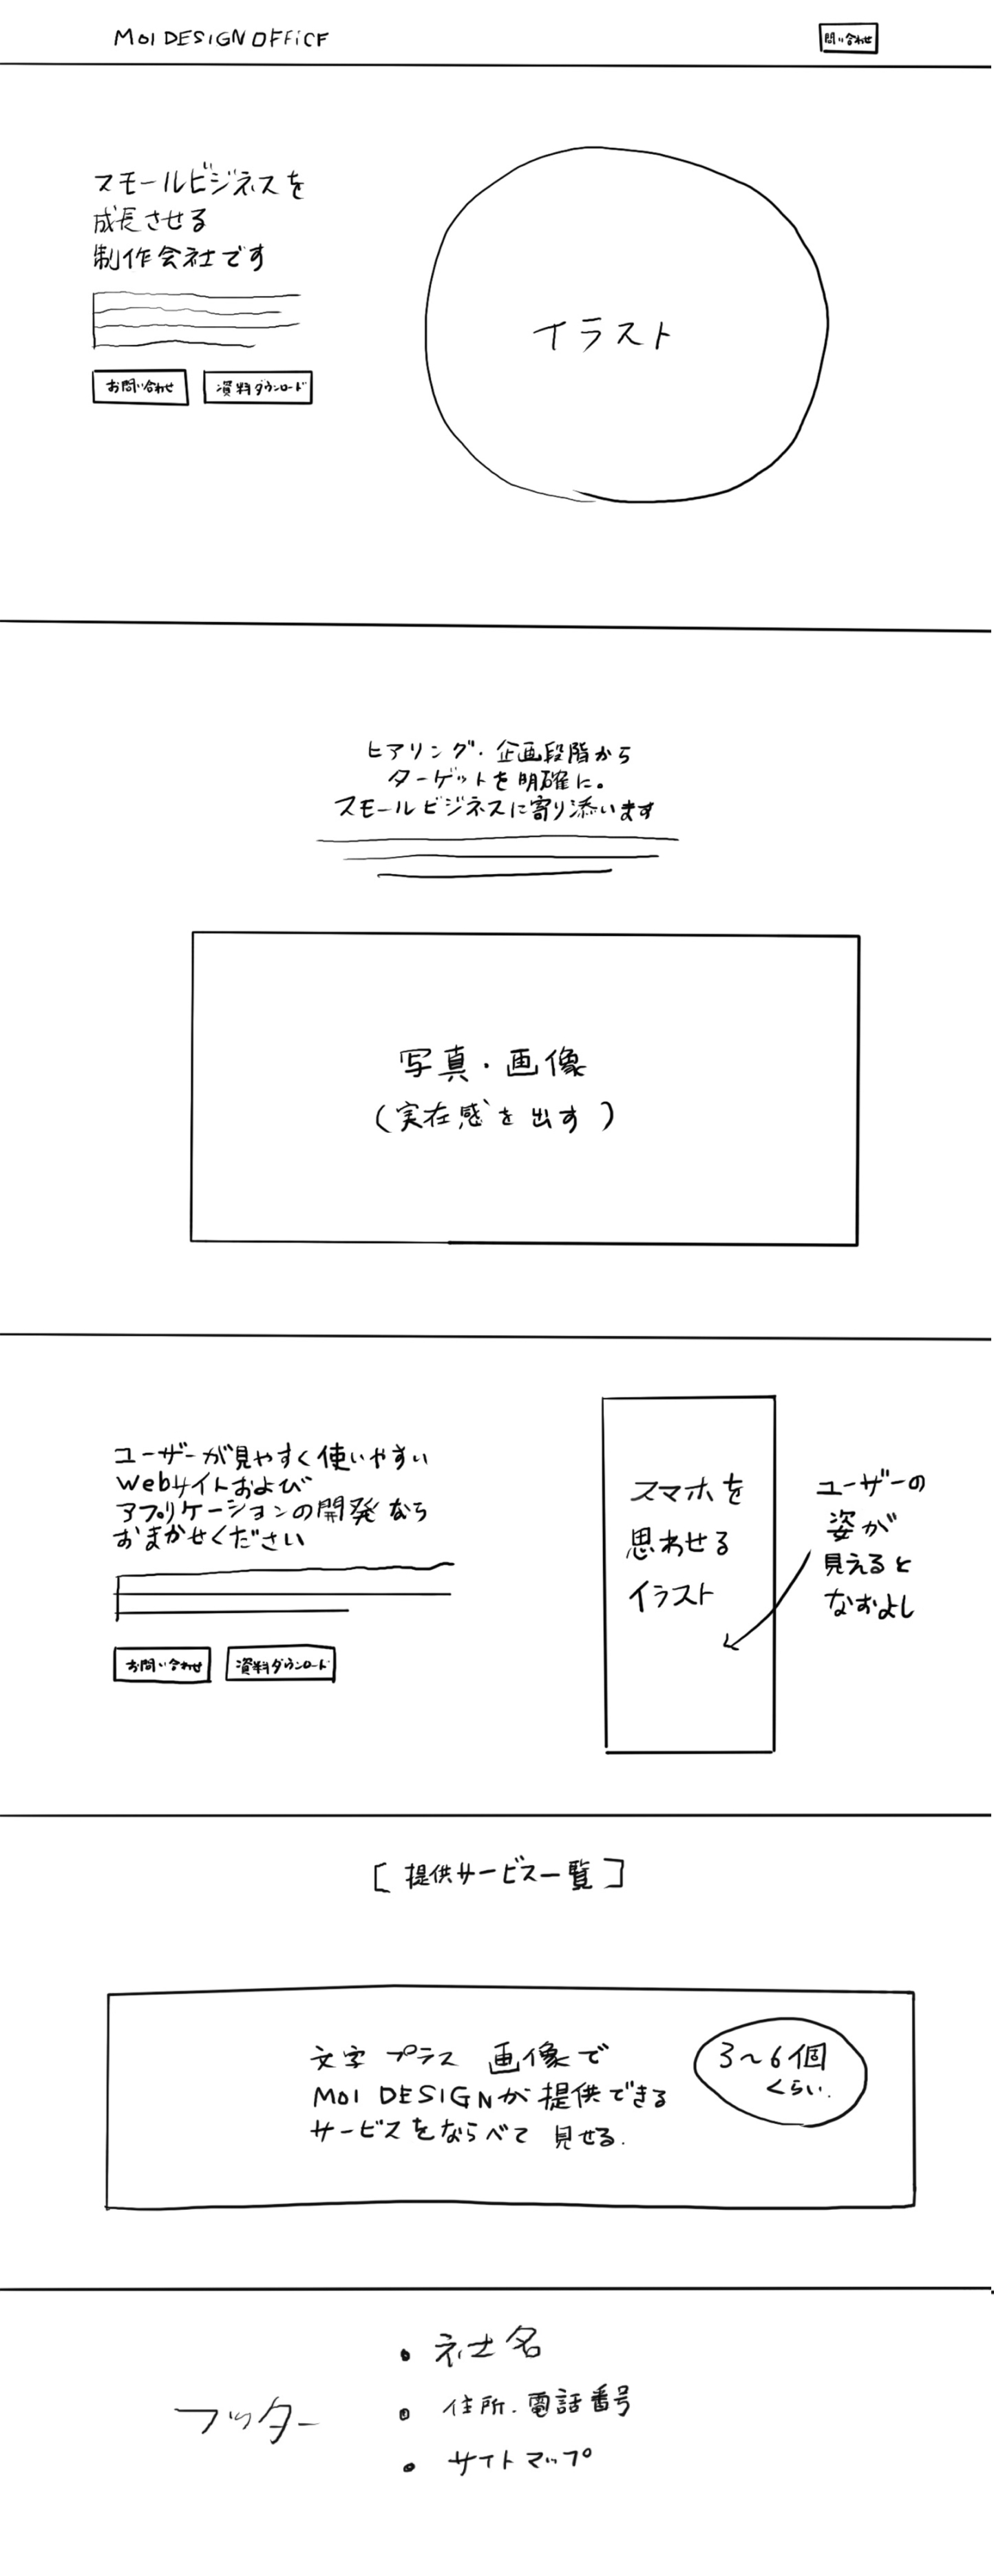 MOI DESIGN OFFICE
問い合わせ
スモールビジネスを
成長させる
制作会社です
お問い合わせ
資料ダウンロード
イラスト
ヒアリング・企画段階から
ターゲットを明確に。
スモールビジネスに寄り添います
写真・画像
(実在感を出す)
ユーザーが見やすく使いやすい
Webサイトおよび
アプリケーションの開発なら
おまかせください
お問い合わせ
資料ダウンロード
スマホを
思わせる
イラスト
ユーザーの
姿が
見えると
なおよし
[提供サービス一覧]
文字プラス画像で
MOI DESIGNが提供できる
サービスをならべて見せる.
3~6個
くらい.
フッター
• 社名
• 住所.電話番号
• サイトマップ